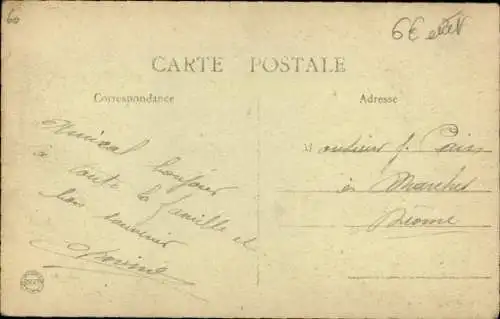 60
6€
CARTE POSTALE
Correspondance
Adresse
Amical bonjour
à toute la famille et
bon souvenir
Monsieur J.
à
Drôme